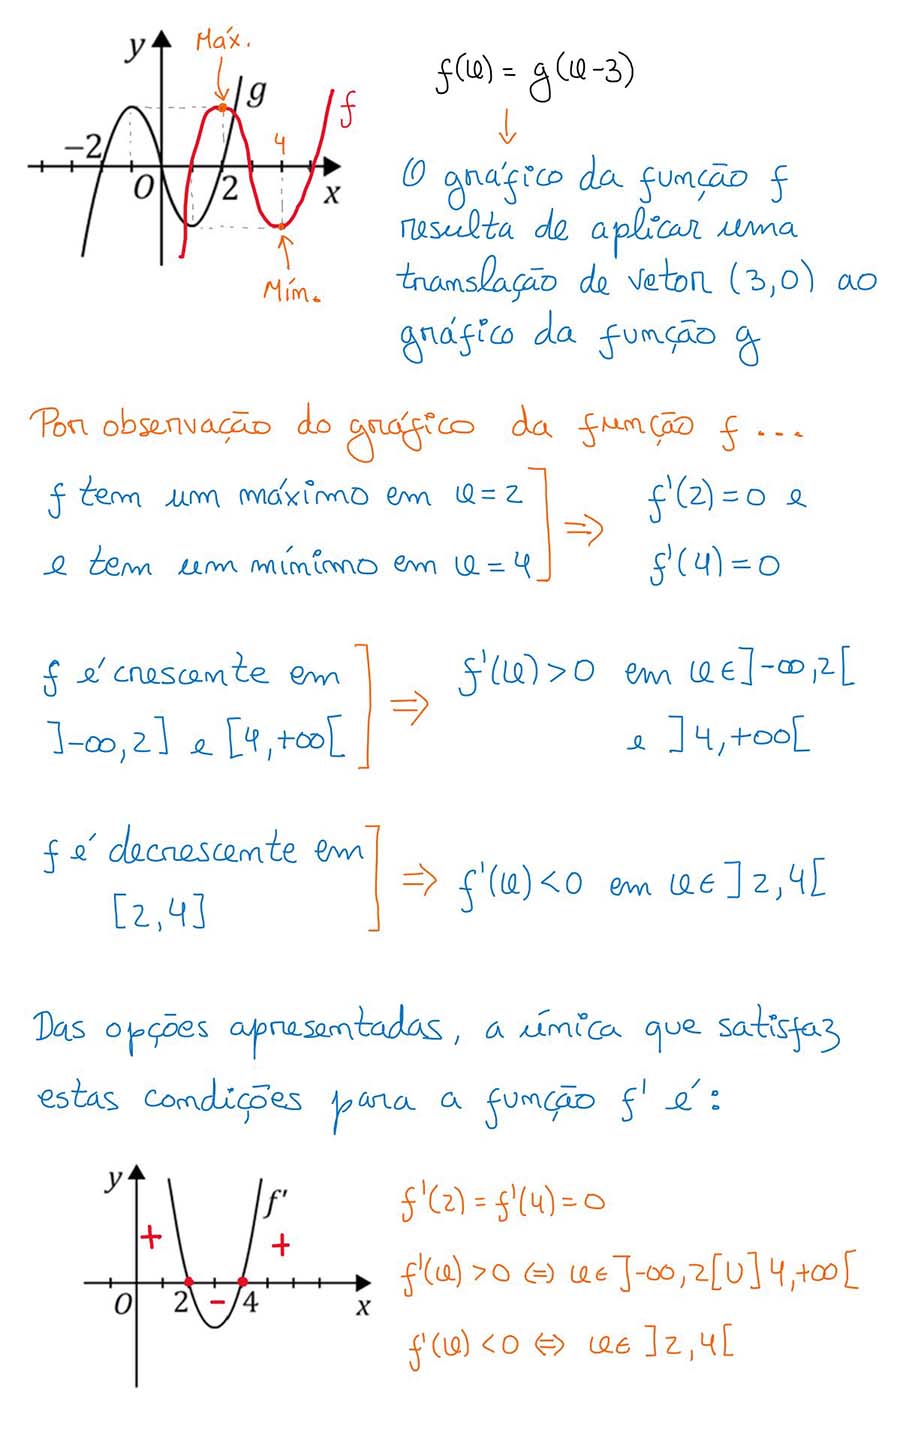 y
Máx.
g
f
-2
4
O
2
x
Mín.
f(x) = g(x-3)
↓
O gráfico da função f
resulta de aplicar uma
translação de vetor (3,0) ao
gráfico da função g
Por observação do gráfico da função f ...
f tem um máximo em x=2
e tem um mínimo em x=4
⇒
f'(2)=0 e
f'(4)=0
f é crescente em
]-∞,2] e [4,+∞[
⇒
f'(x)>0 em x∈]-∞,2[
e ]4,+∞[
f é decrescente em
[2,4]
⇒ f'(x)<0 em x∈]2,4[
Das opções apresentadas, a única que satisfaz
estas condições para a função f' é:
y
f'
+
+
O
2
-
4
x
f'(2)=f'(4)=0
f'(x)>0 ⇔ x∈]-∞,2[U]4,+∞[
f'(x)<0 ⇔ x∈]2,4[